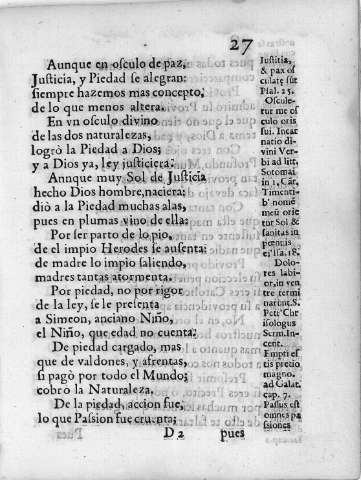 27
Aunque en osculo de paz,
Justicia, y Piedad se alegran:
siempre hazemos mas concepto,
de lo que menos altera.
En vn osculo divino
de las dos naturalezas,
logrò la Piedad a Dios;
y a Dios ya, ley justiciera.
Aunque muy Sol de Justicia
hecho Dios hombre, naciera:
diò a la Piedad muchas alas,
pues en plumas vino de ella:
Por ser parto de lo pio,
de el impio Herodes se ausenta:
de madre lo impio saliendo,
madres tantas atormenta.
Por piedad, no por rigor
de la ley, se le presenta
a Simeon, anciano Niño,
el Niño, que edad no cuenta:
De piedad cargado, mas
que de valdones, y afrentas,
si pagò por todo el Mundo;
cobrò la Naturaleza.
De la piedad, accion fue,
lo que Passion fue cruenta;
D 2 pues
Iustitia,
& pax os
culatę sūt
Psal. 25.
Oscule-
tur me os
culo oris
sui. Incar
natio di-
vini Ver-
bi ad litt.
Sotomai
in 1. Cāt.
Timenti-
b' nomē
meū orie
tur Sol &
sanitas in
pennis
ei'
Dolo-
res labi-
or, in ven
tre termi
narint. S.
Petr' Chr
isologus
Serm. In-
cent.
Empti es
tis pretio
magno.
ad Galat.
cap. 7.
Passus est
omnes pa
ssiones